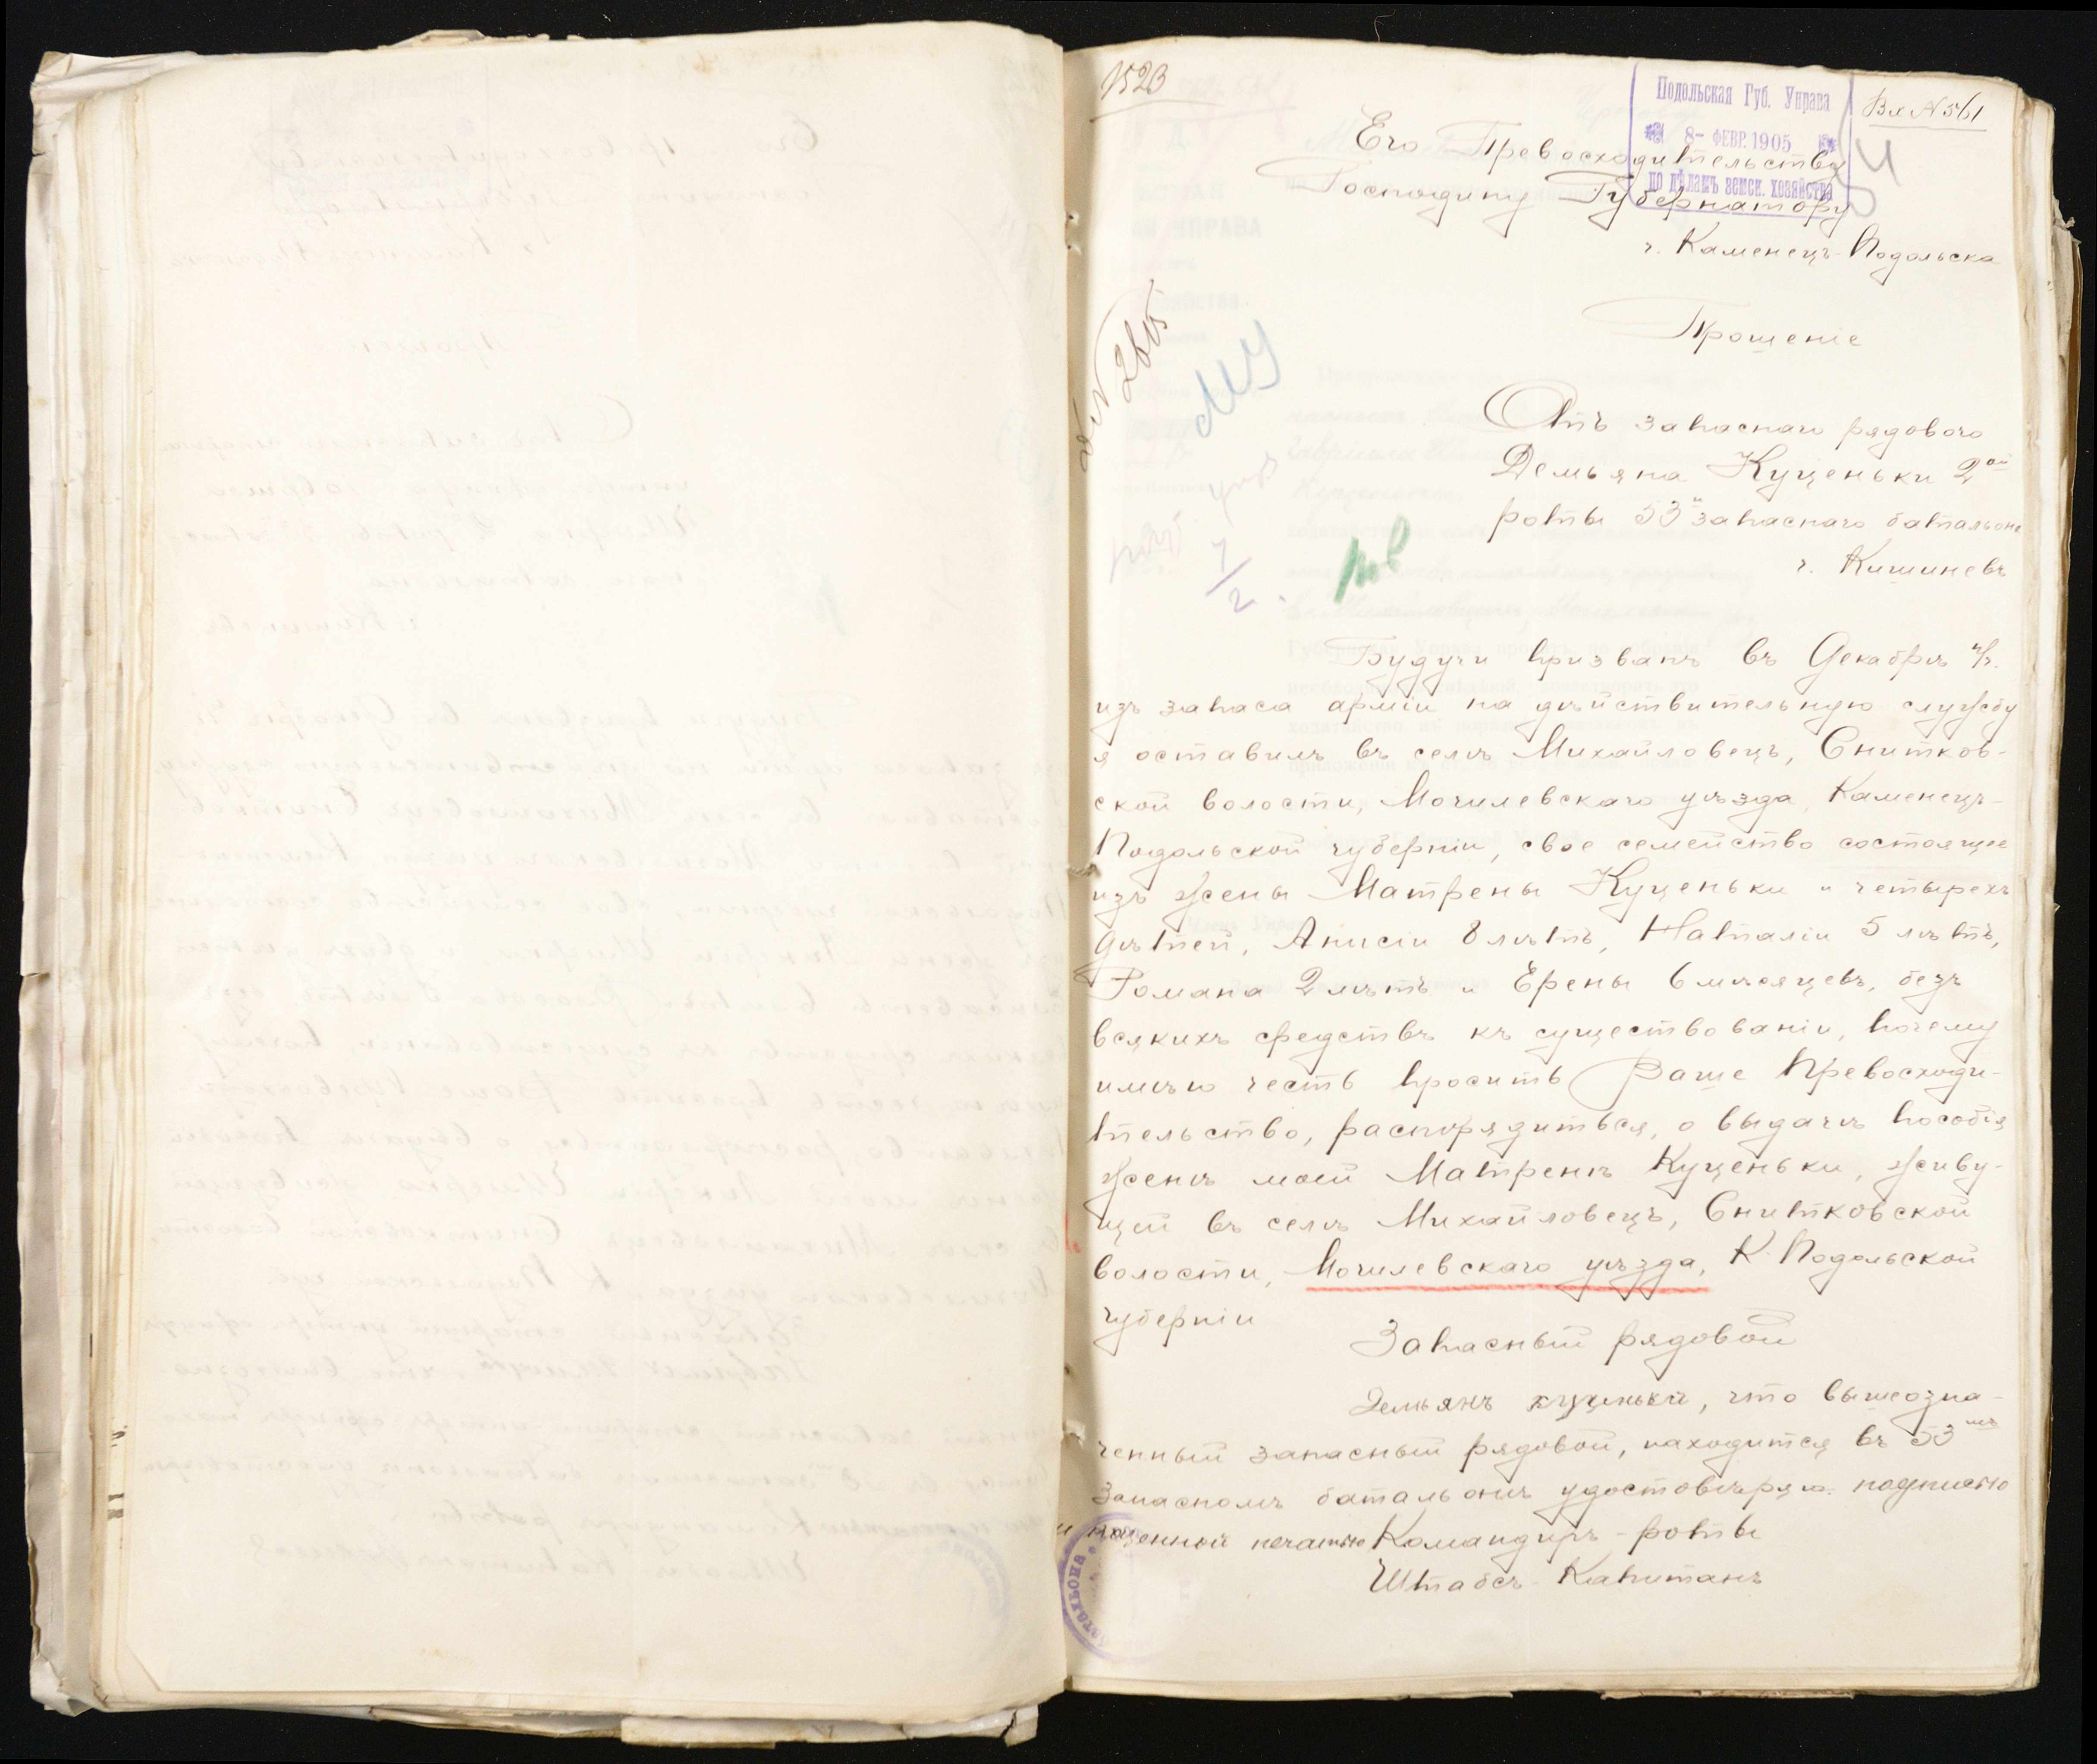 1523
Подольская Губ. Управа
8- ФЕВР. 1905
по дѣламъ земск. хозяйства
Вх №561
Его Превосходительству
Господину Губернатору
г. Каменецъ-Подольска
Прошеніе
Отъ запаснаго рядового
Демьяна Куценьки 2ой
роты 53й запаснаго баталіона
г. Кишиневъ
Будучи призванъ въ Декабрѣ м/г.
изъ запаса арміи на дѣйствительную службу
я оставилъ въ селѣ Михайловецъ, Снитков-
ской волости, Могилевскаго уѣзда, Каменецъ-
Подольской губерніи, свое семейство состоящее
изъ жены Матрены Куценьки и четырехъ
дѣтей, Анисіи 8 лѣтъ, Наталіи 5 лѣтъ,
Романа 2 лѣтъ и Ерены 6 мѣсяцевъ, безъ
всякихъ средствъ къ существованію, почему
имѣю честь просить Ваше Превосходи-
тельство, распорядиться, о выдачѣ пособія
женѣ моей Матренѣ Куценьки, живу-
щей въ селѣ Михайловецъ, Снитковской
волости, Могилевскаго уѣзда, К. Подольской
губерніи
Запасный рядовой
Демьянъ куценька, что вышеозна-
ченный запасный рядовой, находится въ 53мъ
Запасномъ баталіонѣ удостовѣряю подписью
и казенной печатью Командиръ роты
Штабсъ-Капитанъ